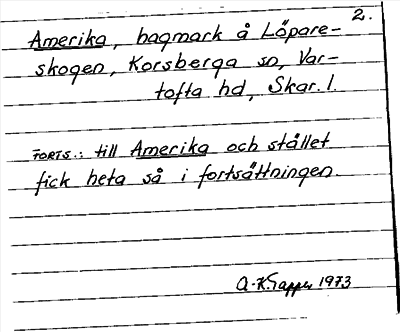 2.
Amerika, hagmark å Löpare-
skogen, Korsberga sn, Var-
tofta hd, Skar. l.
FORTS.: till Amerika och stället
fick heta så i fortsättningen.
1973